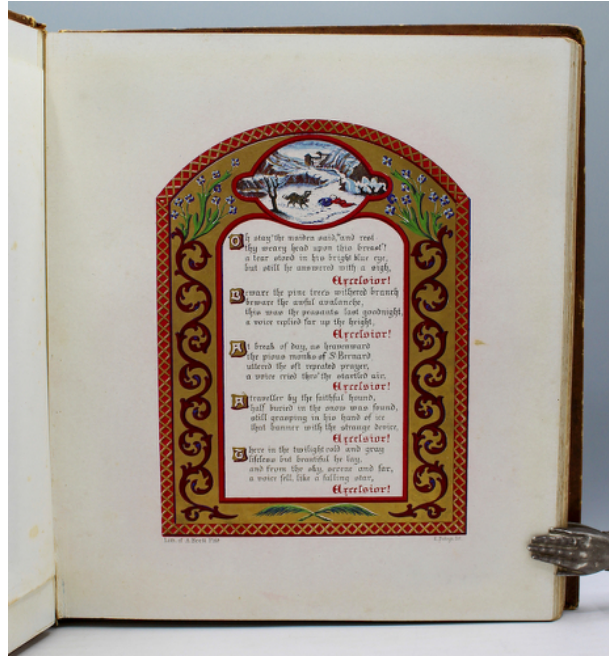 Oh stay" the maiden said, "and rest
thy weary head upon this breast"!
a tear stood in his bright blue eye,
but still he answered with a sigh,
Excelsior!
Beware the pine tree's withered branch
beware the awful avalanche,
this was the peasants last goodnight,
a voice replied far up the height,
Excelsior!
At break of day, as heavenward
the pious monks of St Bernard
uttered the oft repeated prayer,
a voice cried thro' the startled air.
Excelsior!
A traveller by the faithful hound,
half buried in the snow was found,
still grasping in his hand of ice
that banner with the strange device,
Excelsior!
There in the twilight cold and gray
lifeless but beautiful he lay,
and from the sky, serene and far,
a voice fell, like a falling star,
Excelsior!
Lith. of